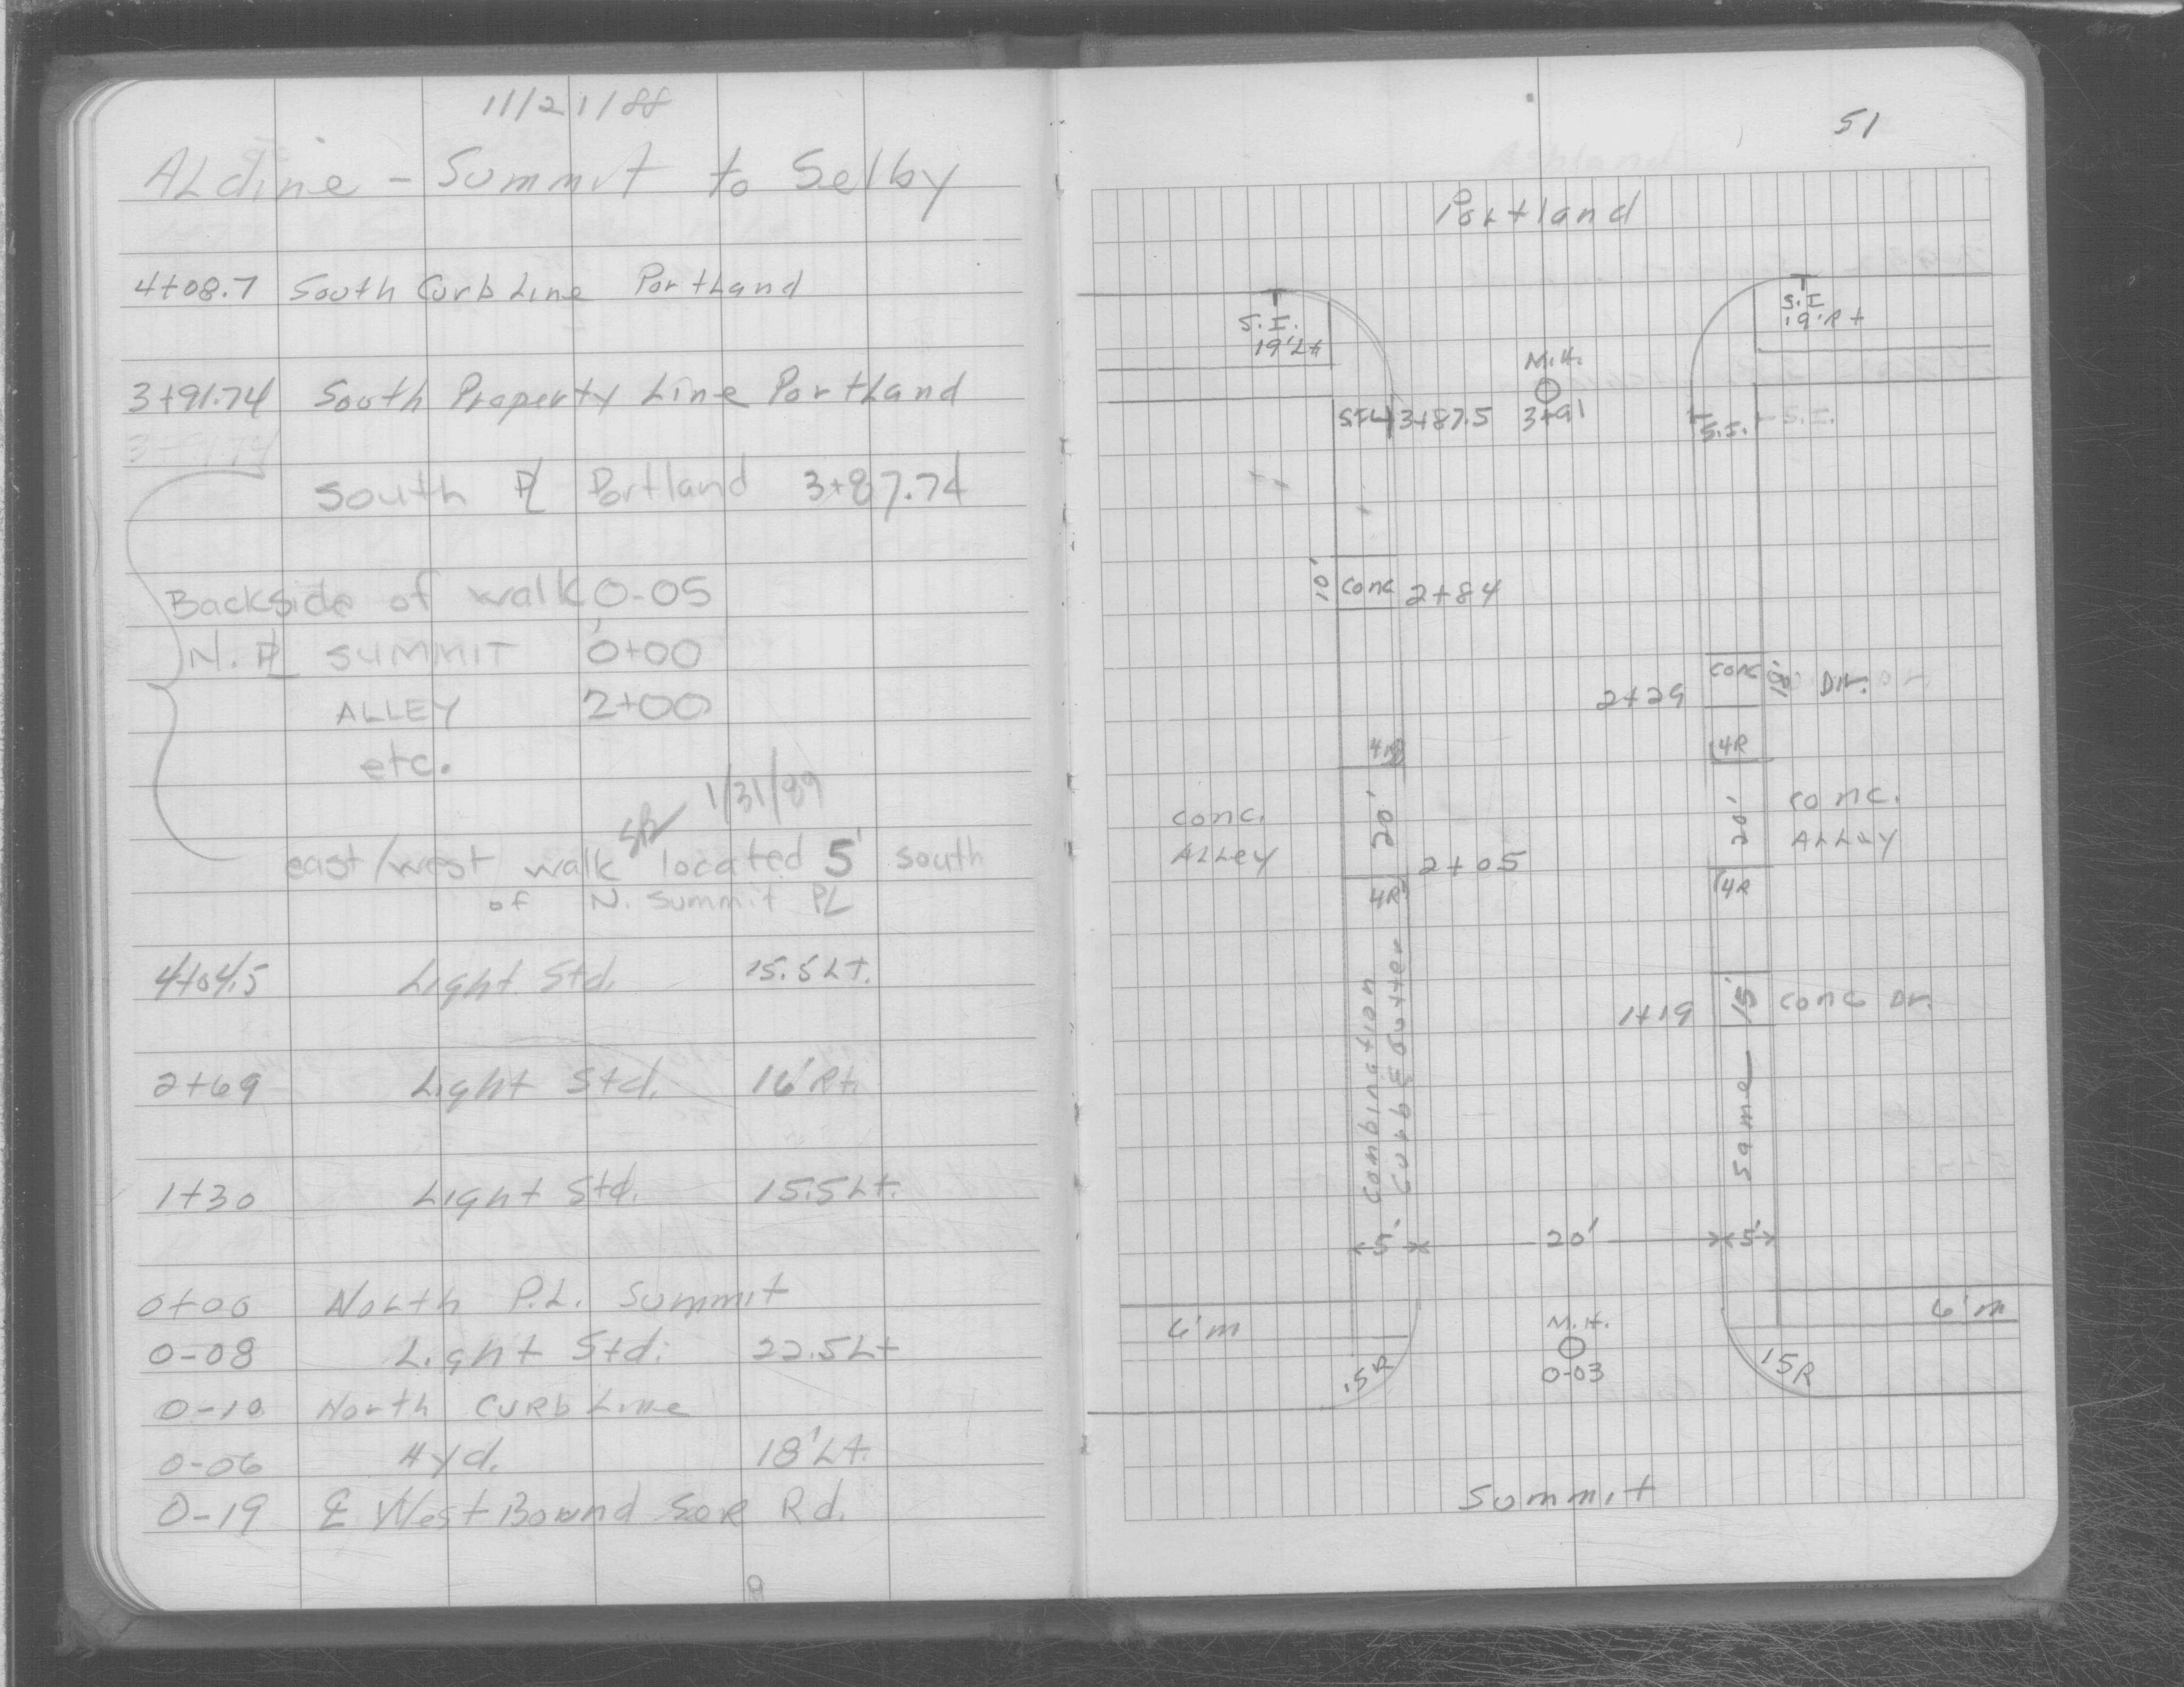 11/21/88
ALdine - Summit to Selby
4+08.7 South Curb Line Portland
3+91.74 South Property Line Portland
3+91.74
South PL Portland 3+87.74
Backside of walk 0-05
N. PL SUMMIT 0+00
ALLEY 2+00
etc.
1/31/89
east/west walk located 5' south
of N. Summit PL
4+04.5 Light Std. 15.5 Lt.
2+69 Light Std. 16' Rt.
1+30 Light Std. 15.5 Lt.
0+00 North P.L. Summit
0-08 Light Std. 22.5 Lt
0-10 North CURb Line
0-06 Hyd. 18' Lt.
0-19 ℄ West Bound Rd.
51
Portland
S.I.
19' Lt
S.I.
19' Rt
M.H.
3+87.5 3+91
S.I.
10' Conc 2+84
2+29 Conc 10' Dr.
4R
4R
conc.
Alley
20'
20'
conc.
ALLey
2+05
4R
4R
1+19 15' conc Dr.
Combination
Curb & Gutter
Same
5' 20' 5'
6' m
6' m
M.H.
0-03
15R
15R
Summit